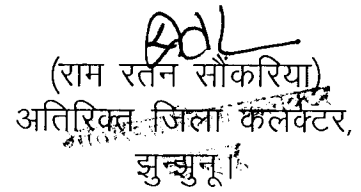 (राम रतन सौंकरिया)
अतिरिक्त जिला कलेक्टर,
झुन्झुनू।